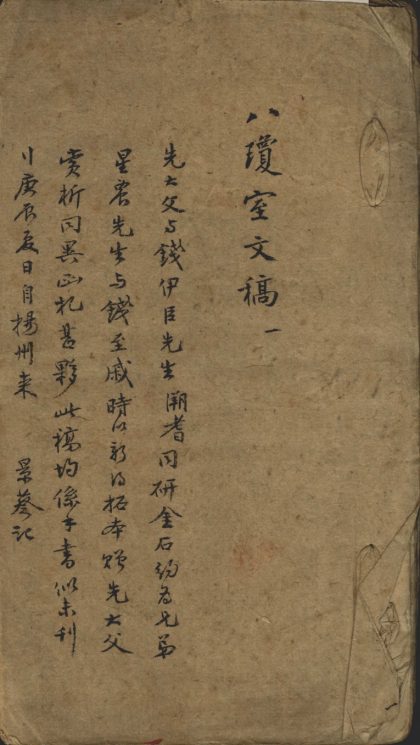 八瓊室文稿 一
先大父与錢伊臣先生溯耆同研金石約為兄弟
星農先生与錢至戚時以新得拓本贈先大父
賞析同異函札甚夥此稿均係手書似未刊
庚辰夏日自揚州来 景葵記